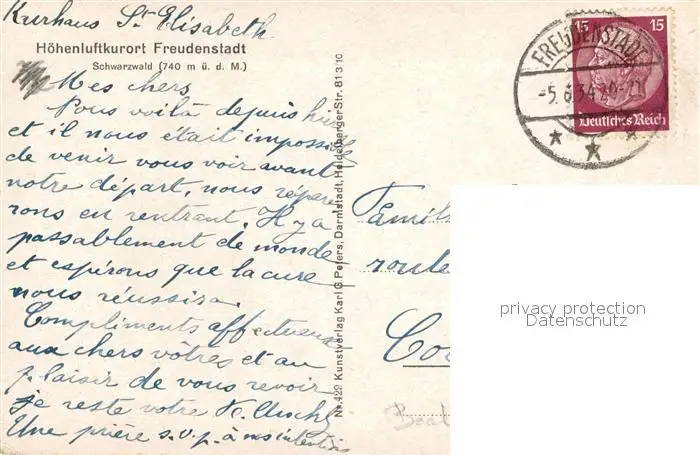 Kurhaus St Elisabeth
Höhenluftkurort Freudenstadt
Schwarzwald (740 m ü. d. M.)
Mes chers
Vous voilà depuis hier
et il nous était impossible
de venir vous voir avant
notre départ, nous répare
rons en rentrant. Il y a
passablement de monde
et espérons que la cure
nous réussira.
Compliments affectueux
aux chers vôtres et au
plaisir de vous revoir
je reste votre
Une prière s.v.p. à nos intentions
Nr. 429 Kunstverlag Karl G. Peters, Darmstadt, Heidelberger Str. 81 3 10
FREUDENSTADT
-5.6.34
15 15
Deutsches Reich
Famil
route
Co
privacy protection
Datenschutz